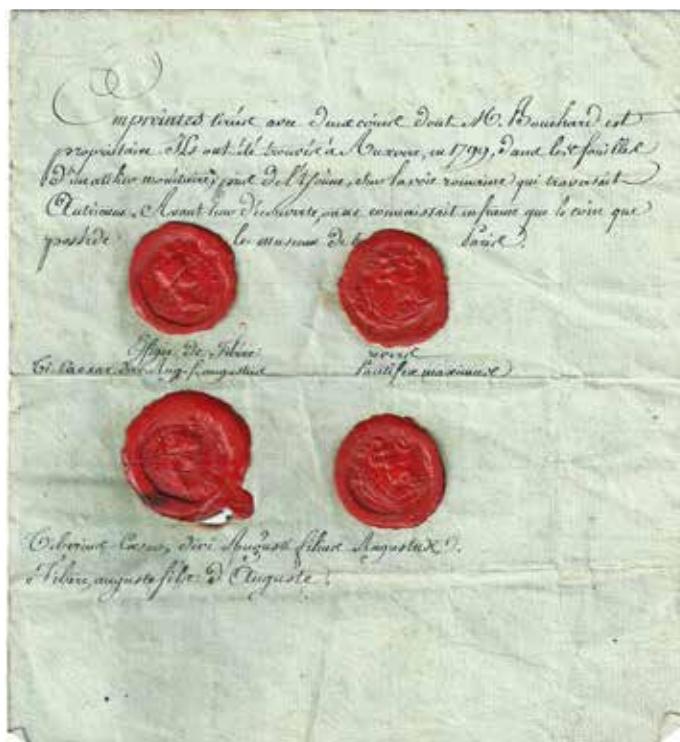 Empreintes tirées avec deux coins dont M. Bouchard est
propriétaire. Ils ont été trouvés à Auxerre, en 1799, dans les fouilles
d'un attelier monétaire, près de l'Yonne, sur la voie romaine qui traversait
Autricum. Avant leur découverte, on ne connaissait en france que le coin que
possède le museum de Paris.
Effigie de Tibère revers
Ti Caesar divi Aug. f. augustus Pontifex maximus
Tiberius Caesar, divi Augusti filius Augustus.
Tibère, auguste fils d'Auguste.